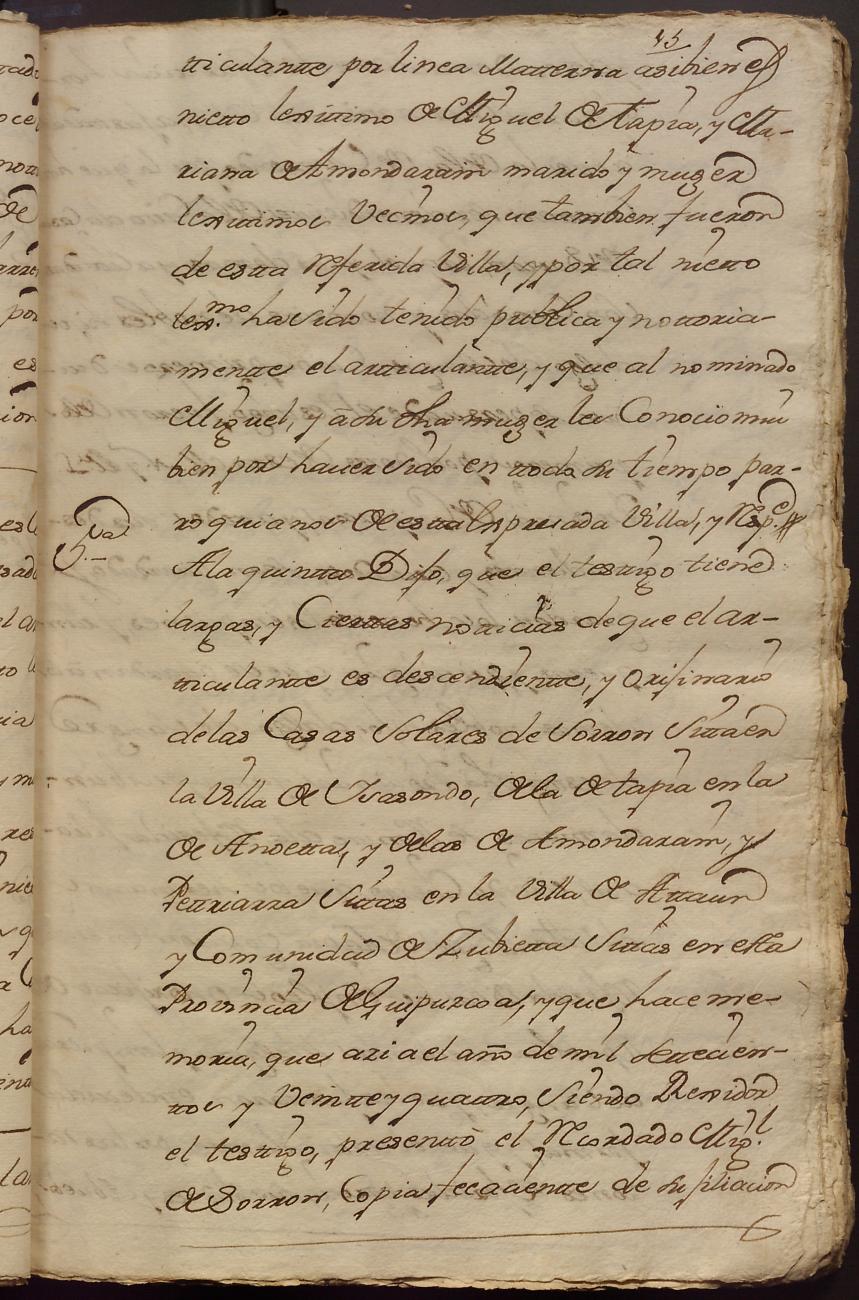 45
tticulantte por linea Matterna asibien es
nietto lexittimo de Miguel de Tapia, y Ma-
riana de Amondarain marido y muger
lexitimos Vecinos, que tambien fueron
de estta referida Villa, y por tal nietto
lex.mo ha sido tenido publica y nottoria-
mentte el artticulantte, y que al nominado
Miguel, y a su dha muger les Conocio mui
bien por haver sido en ttodo su tiempo par-
roquianos de estta Expresada Villa, y Resp.de
5.ta
A la quintta Dijo, que el testtigo tiene
largas, y Cierttas noticias de que el ar-
tticulantte es descendientte, y orijinario
de las Casas Solares de Sorron Sitta en
la Villa de Ysasondo, de la de Tapia en la
de Anoetta, y de las de Amondarain, y
Petriarza Sittas en la Villa de Attaun
y Comunidad de Zubietta Sittas en esta
Provincia de Guipuzcoa, y que hace me-
moria, que azia el año de mil settecien-
ttos y Veintte y quattro, siendo Rexidor
el testtigo, presentto el Recordado Mig.l
de Sorron, Copia fee acientte de su filiacion